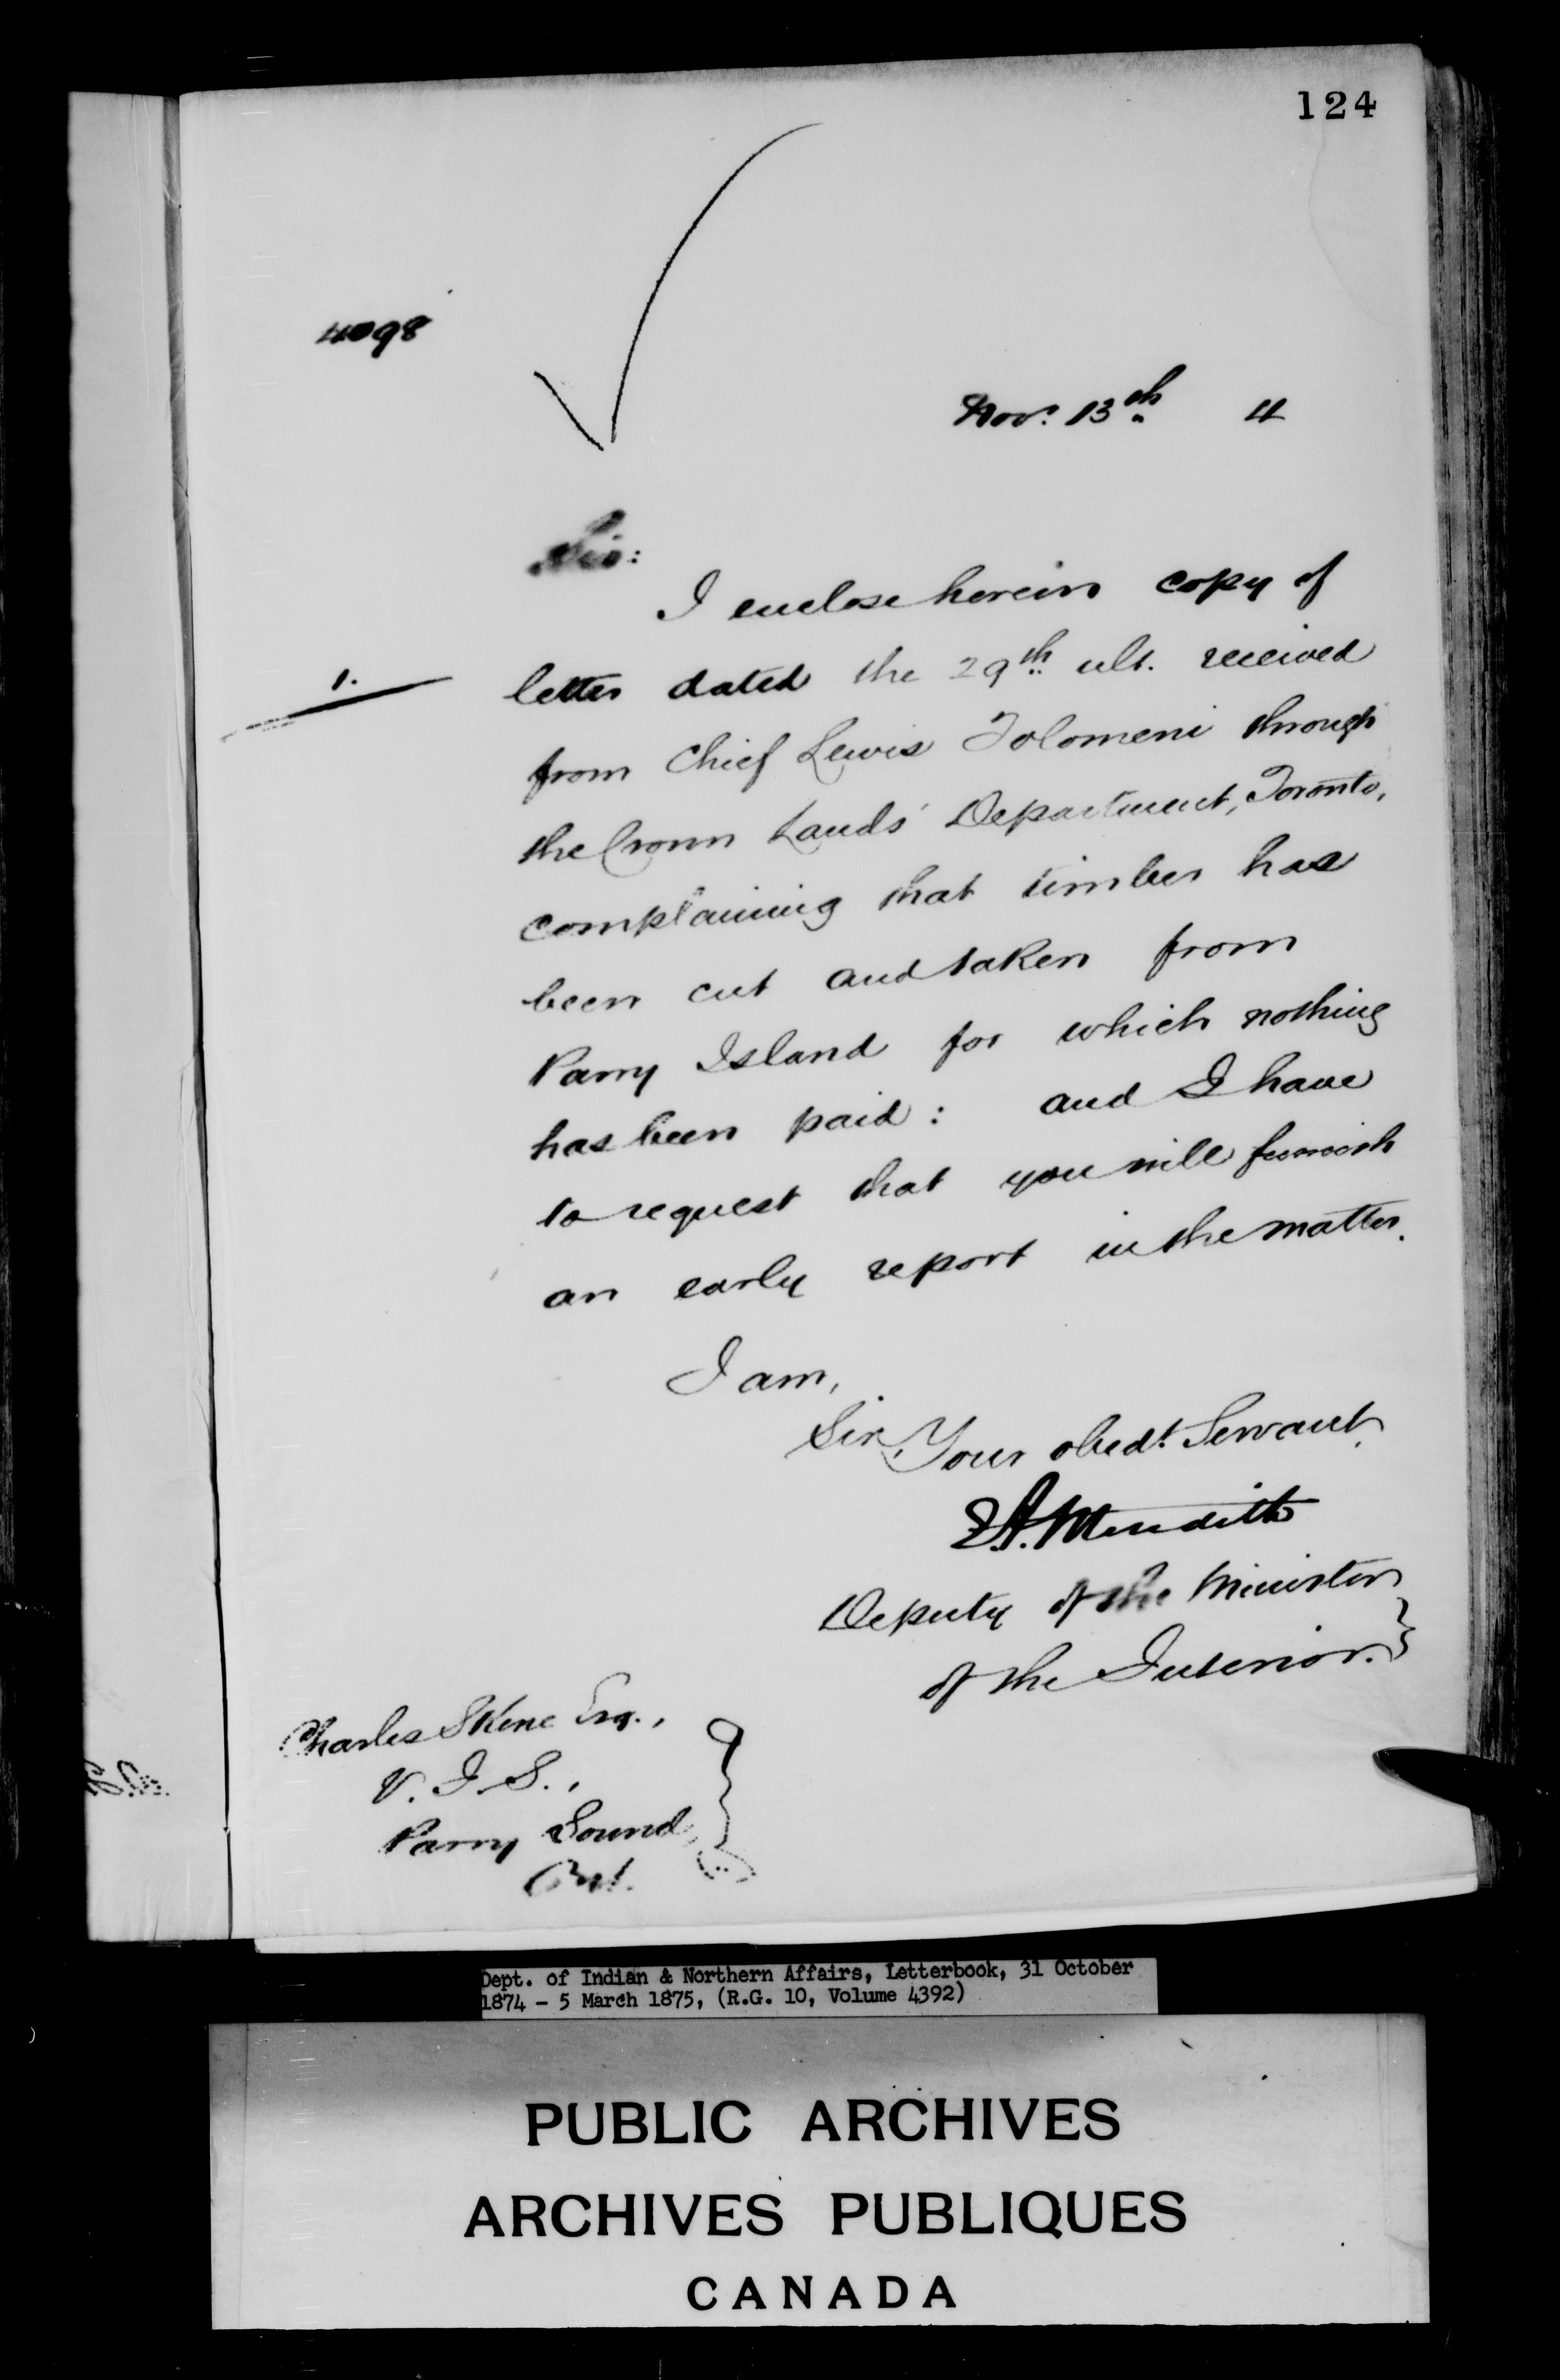 124
4098
Nov. 13th 4
Sir:
I enclose herein copy of
1.
letter dated the 29th ult. received
from Chief Lewis Tolomeni through
the Crown Lands' Department, Toronto,
complaining that timber has
been cut and taken from
Parry Island for which nothing
has been paid: and I have
to request that you will furnish
an early report in the matter.
I am,
Sir, Your obedt. Servant
E.A. Meredith
Deputy of the Minister
of the Interior.
Charles Skene Esq.,
V. I. S.,
Parry Sound,
Ont.
Dept. of Indian & Northern Affairs, Letterbook, 31 October
1874 - 5 March 1875, (R.G. 10, Volume 4392)
PUBLIC ARCHIVES
ARCHIVES PUBLIQUES
CANADA